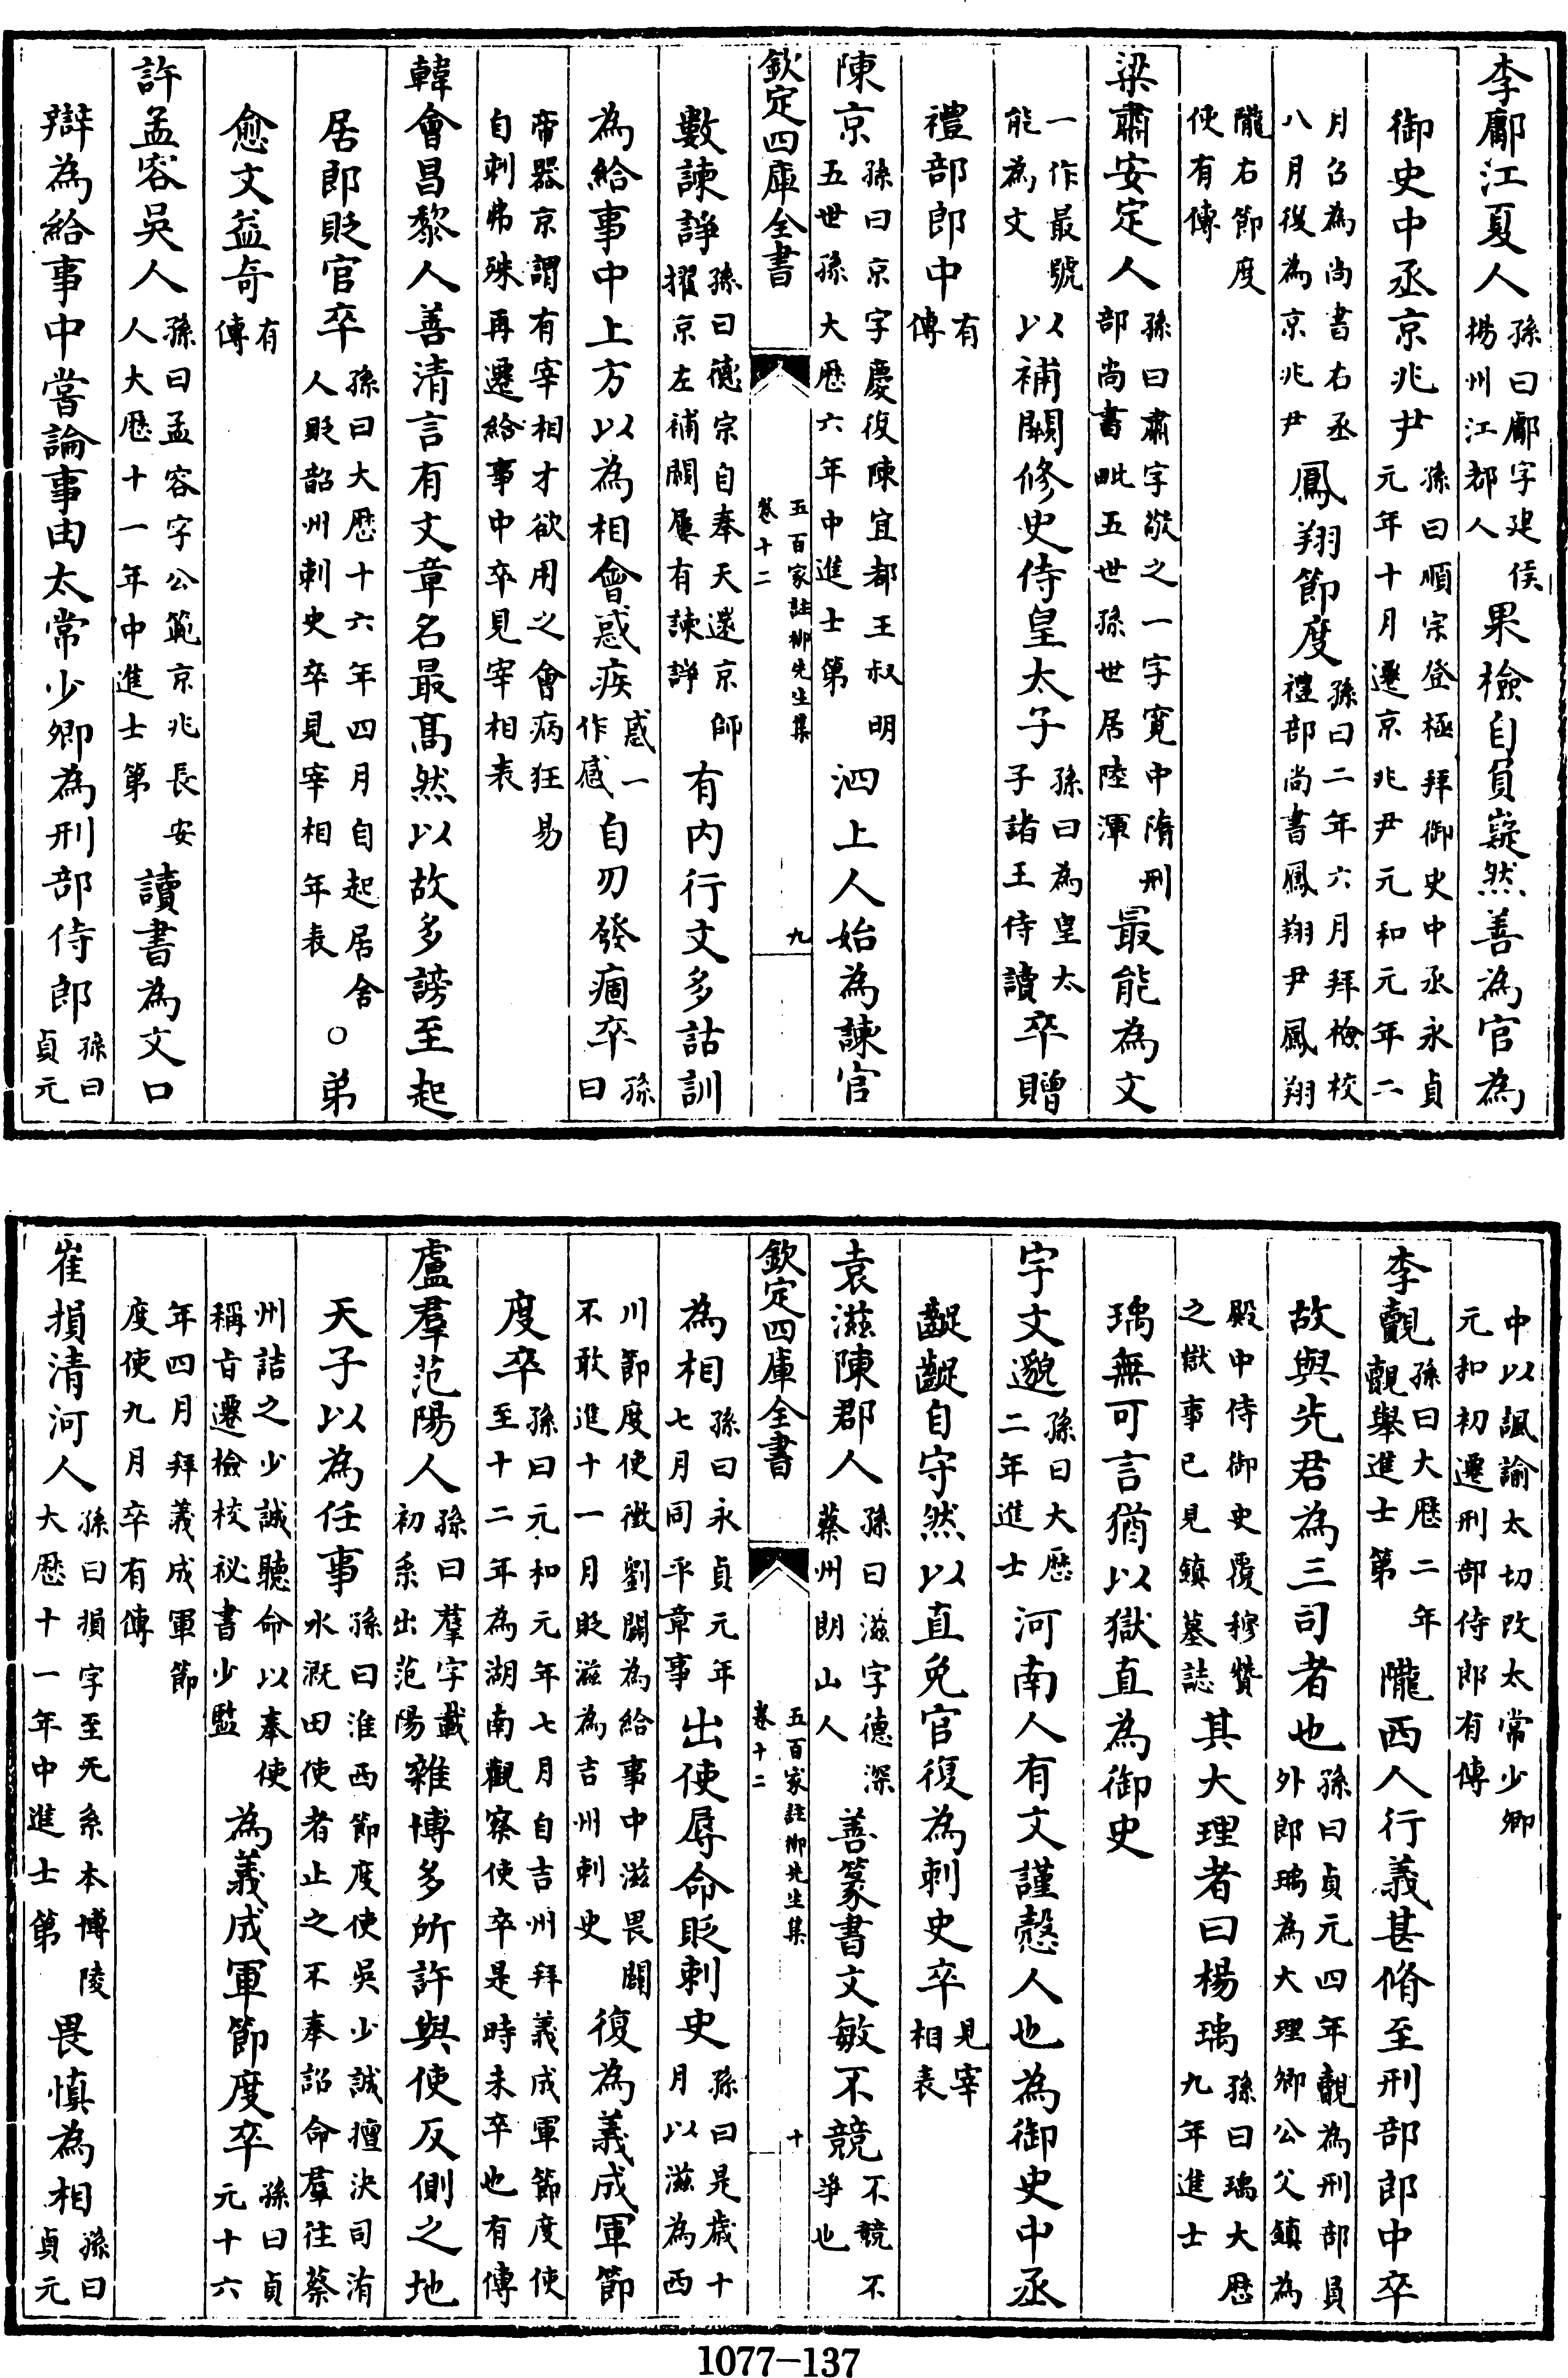 李鄘江夏人孫曰鄘字建侯揚州江都人果檢自負嶷然善為官為
御史中丞京兆尹孫曰順宗登極拜御史中丞永貞元年十月遷京兆尹元和元年二
月召為尚書右丞八月復為京兆尹鳳翔節度孫曰二年六月拜檢校禮部尚書鳳翔尹鳳翔
隴右節度使有傳
梁肅安定人孫曰肅字敬之一字寛中隋刑部尚書毗五世孫世居陸渾最能為文
一作最號能為文以補闕修史侍皇太子孫曰為皇太子諸王侍讀卒贈
禮部郎中有傳
陳京孫曰京字慶復陳宜都王叔明五世孫大厯六年中進士第泗上人始為諫官
欽定四庫全書
五百家註柳先生集
卷十二
九
數諫諍孫曰德宗自奉天還京師擢京左補闕屢有諫諍有内行文多詁訓
為給事中上方以為相會惑疾惑一作感自刃發痼卒孫曰
帝器京謂有宰相才欲用之會病狂易自刺弗殊再遷給事中卒見宰相表
韓會昌黎人善清言有文章名最髙然以故多謗至起
居郎貶官卒孫曰大厯十六年四月自起居舍人貶韶州刺史卒見宰相年表○弟
愈文益奇有傳
許孟容吳人孫曰孟容字公範京兆長安人大厯十一年中進士第讀書為文口
辯為給事中嘗論事由太常少卿為刑部侍郎孫曰貞元
中以諷諭太切改太常少卿元和初遷刑部侍郎有傳
李覿孫曰大厯二年覿舉進士第隴西人行義甚脩至刑部郎中卒
故與先君為三司者也孫曰貞元四年覿為刑部員外郎瑀為大理卿公父鎮為
殿中侍御史覆穆贊之獄事已見鎮墓誌其大理者曰楊瑀孫曰瑀大厯九年進士
瑀無可言猶以獄直為御史
宇文邈孫曰大厯二年進士河南人有文謹慤人也為御史中丞
齪齪自守然以直免官復為刺史卒見宰相表
袁滋陳郡人孫曰滋字德深蔡州朗山人善篆書文敏不競不競不爭也
欽定四庫全書
五百家註柳先生集
卷十二
十
為相孫曰永貞元年七月同平章事出使辱命貶刺史孫曰是歳十月以滋為西
川節度使徵劉闢為給事中滋畏闢不敢進十一月貶滋為吉州刺史復為義成軍節
度卒孫曰元和元年七月自吉州拜義成軍節度使至十二年為湖南觀察使卒是時未卒也有傳
盧羣范陽人孫曰羣字載初系出范陽雜博多所許與使反側之地
天子以為任事孫曰淮西節度使吳少誠擅決司洧水溉田使者止之不奉詔命羣往蔡
州詰之少誠聽命以奉使稱㫖遷檢校祕書少監為義成軍節度卒孫曰貞元十六
年四月拜義成軍節度使九月卒有傳
崔損清河人孫曰損字至无系本博陵大厯十一年中進士第畏慎為相孫曰貞元
1077-137